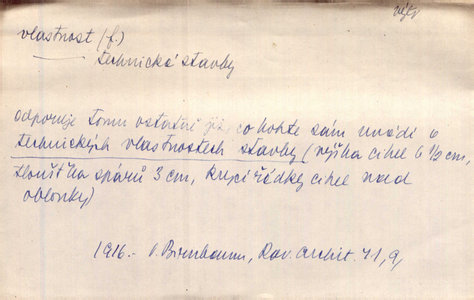 výtv
vlastnost (f.)
technické stavby
odporuje tomu ostatně již, co Kohte sám uvádí o
technických vlastnostech stavby (výška cihel 6 ½ cm,
tloušťka spárů 3 cm, krycí řádky cihel nad
oblouky)
1916.- V. Birnbaum, Rav. archit. 41, 9,